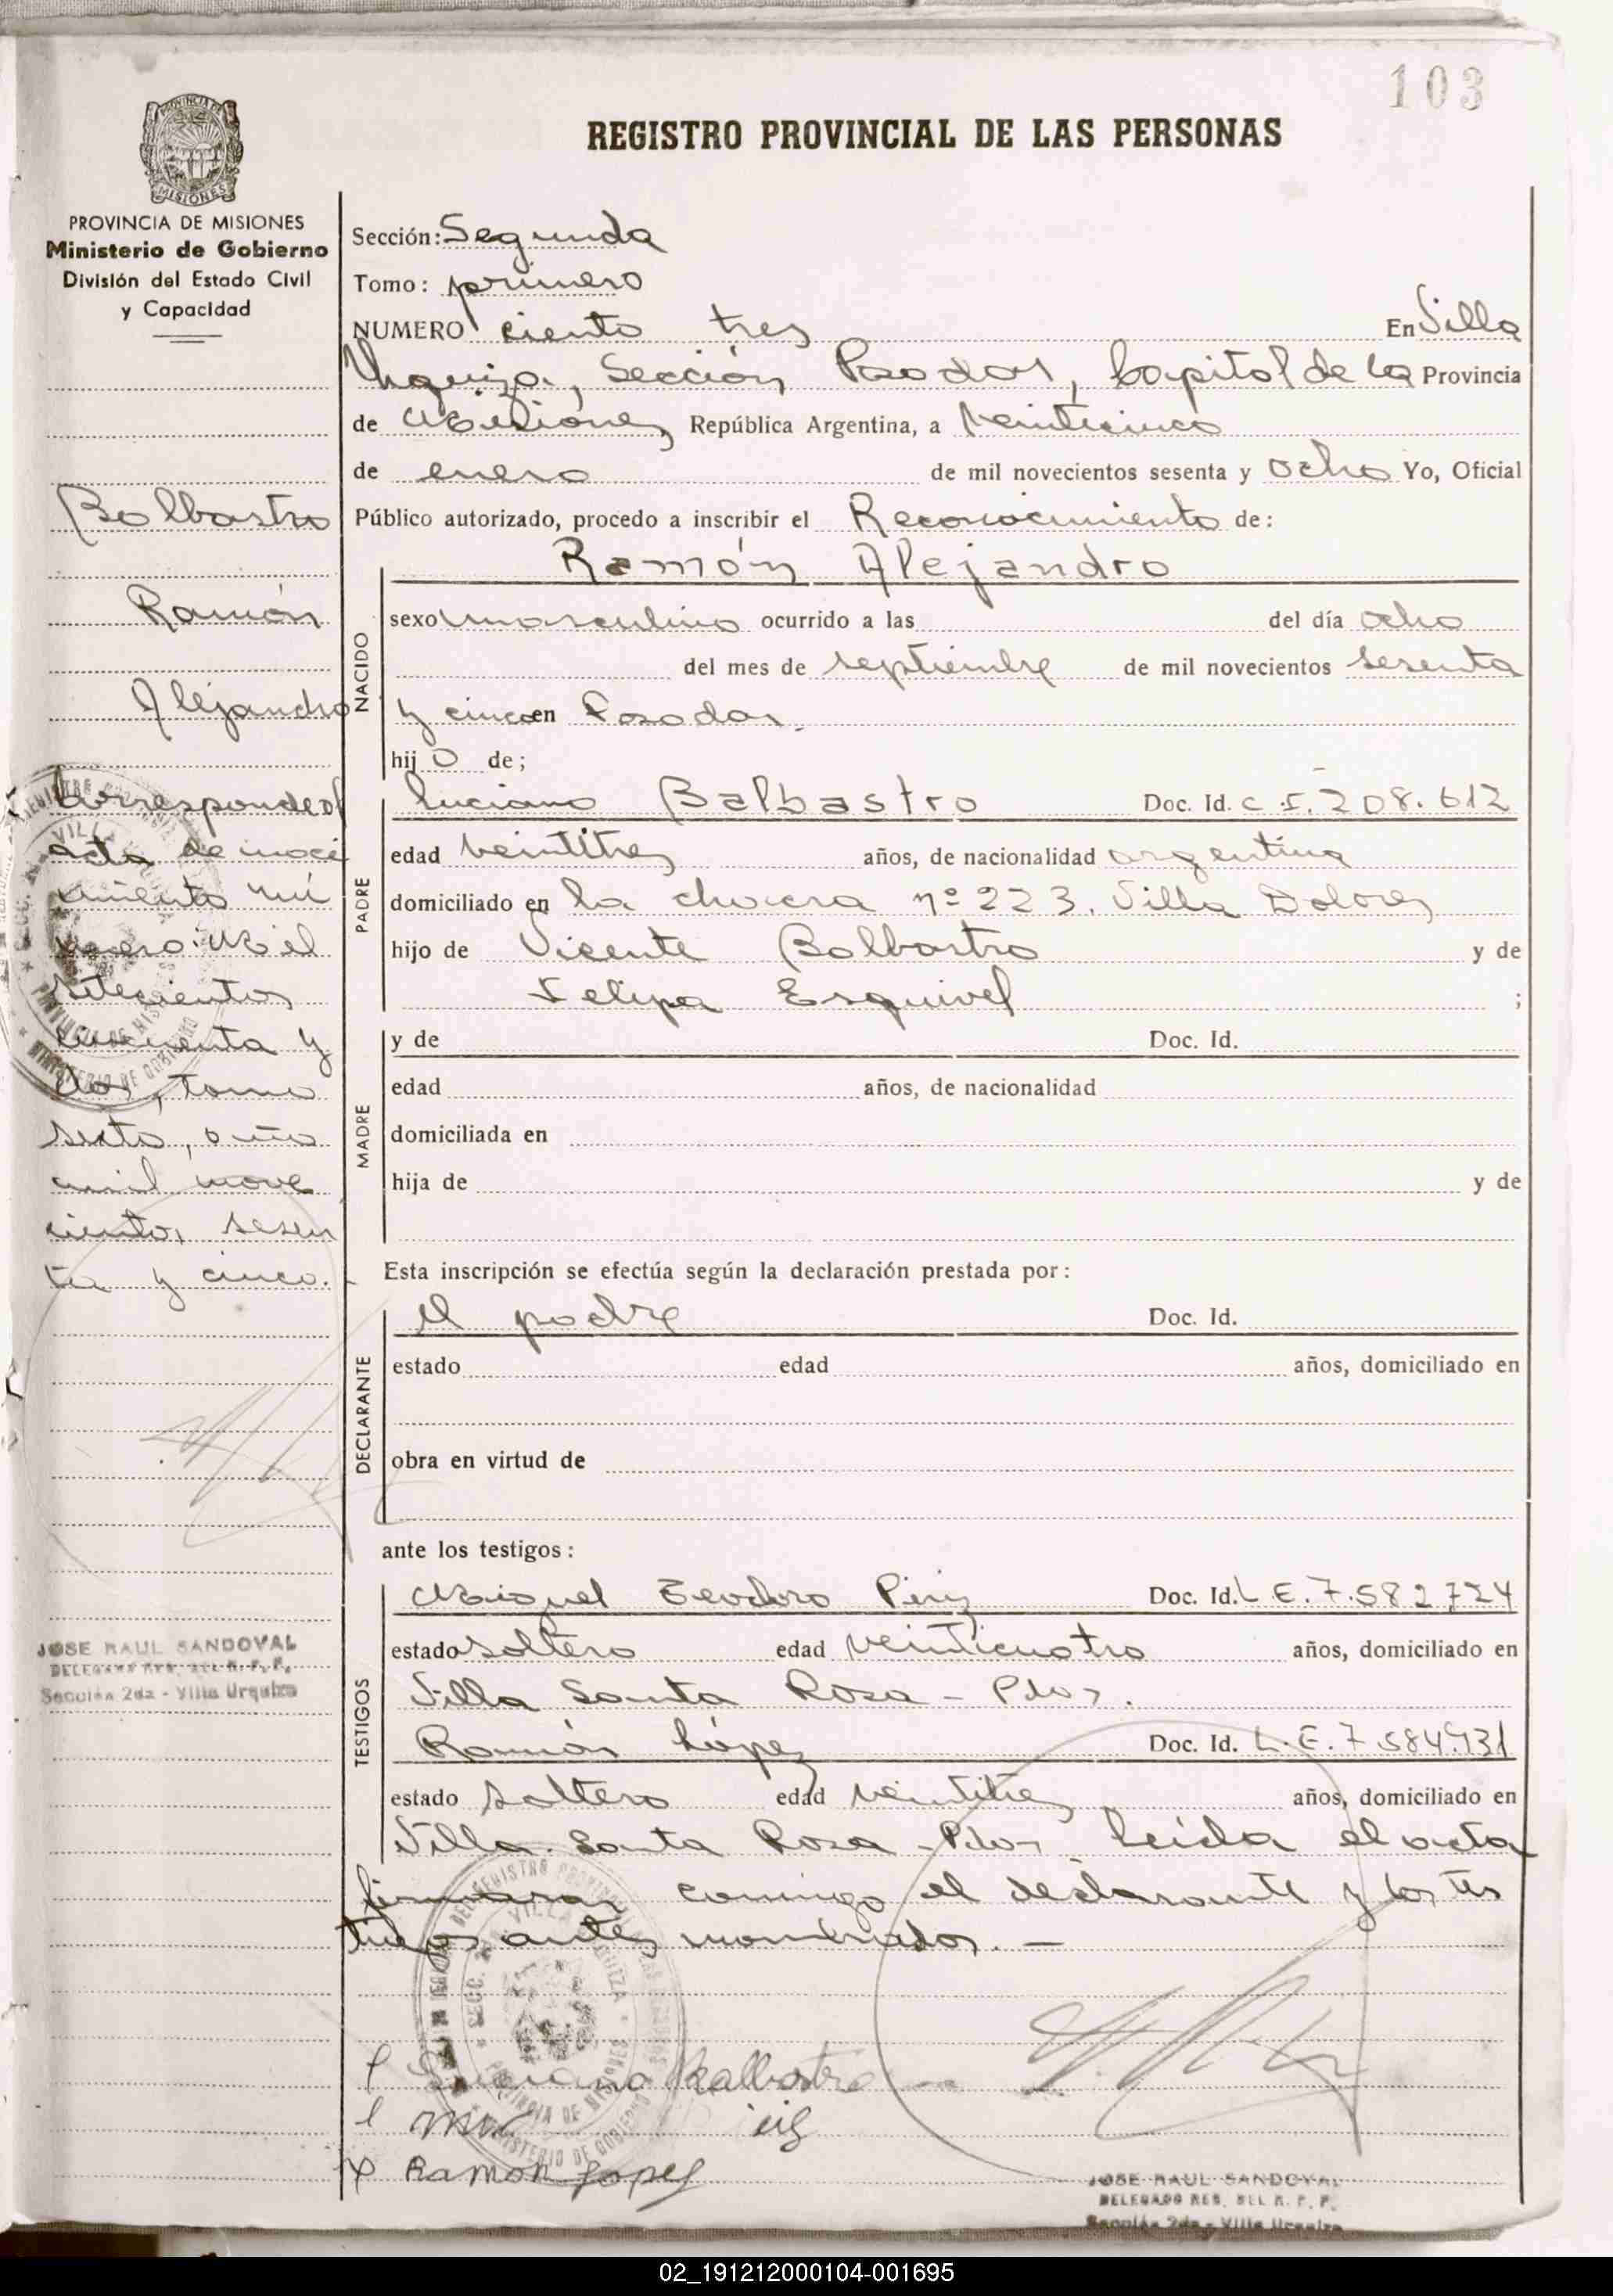 103
REGISTRO PROVINCIAL DE LAS PERSONAS
PROVINCIA DE MISIONES
Ministerio de Gobierno
División del Estado Civil
y Capacidad
Sección: Segunda
Tomo: primero
NUMERO ciento tres En Villa
Urquiza, Sección Posadas, Capital de la Provincia
de Misiones República Argentina, a veinticinco
de enero de mil novecientos sesenta y ocho Yo, Oficial
Público autorizado, procedo a inscribir el Reconocimiento de:
Ramón Alejandro
NACIDO
sexo masculino ocurrido a las del día ocho
del mes de septiembre de mil novecientos sesenta
y cinco en Posadas.
hijo de;
PADRE
Luciano Balbastro Doc. Id. C.I. 208.612
edad veintitres años, de nacionalidad argentina
domiciliado en la chacra nº 223. Villa Dolores
hijo de Vicente Balbastro y de
Felipa Esquivel ;
MADRE
y de Doc. Id.
edad años, de nacionalidad
domiciliada en
hija de y de
Esta inscripción se efectúa según la declaración prestada por:
DECLARANTE
el padre Doc. Id.
estado edad años, domiciliado en
obra en virtud de
ante los testigos:
TESTIGOS
Miguel Teodoro Doc. Id. L.E. 7.582.724
estado soltero edad veinticuatro años, domiciliado en
Villa Santa Rosa - Pdas.
Ramón López Doc. Id. L.E. 7.584.931
estado soltero edad veintitres años, domiciliado en
Villa Santa Rosa - Pdas. Leída el acta
firmaron conmigo el declarante y los tes
tigos antes nombrados. —
Luciano Balbastro
Ramon Lopez
JOSE RAUL SANDOVAL
DELEGADO REG. DEL R. P. P.
Sección 2da - Villa Urquiza
Balbastro
Ramón
Alejandro
Corresponde al
acta de naci
miento nú
mero: Mil
setecientos
cincuenta y
dos, tomo
sexto, año
mil nove
cientos sesen
ta y cinco.
JOSE RAUL SANDOVAL
DELEGADO REG. DEL R. P. P.
Sección 2da - Villa Urquiza
02_191212000104-001695